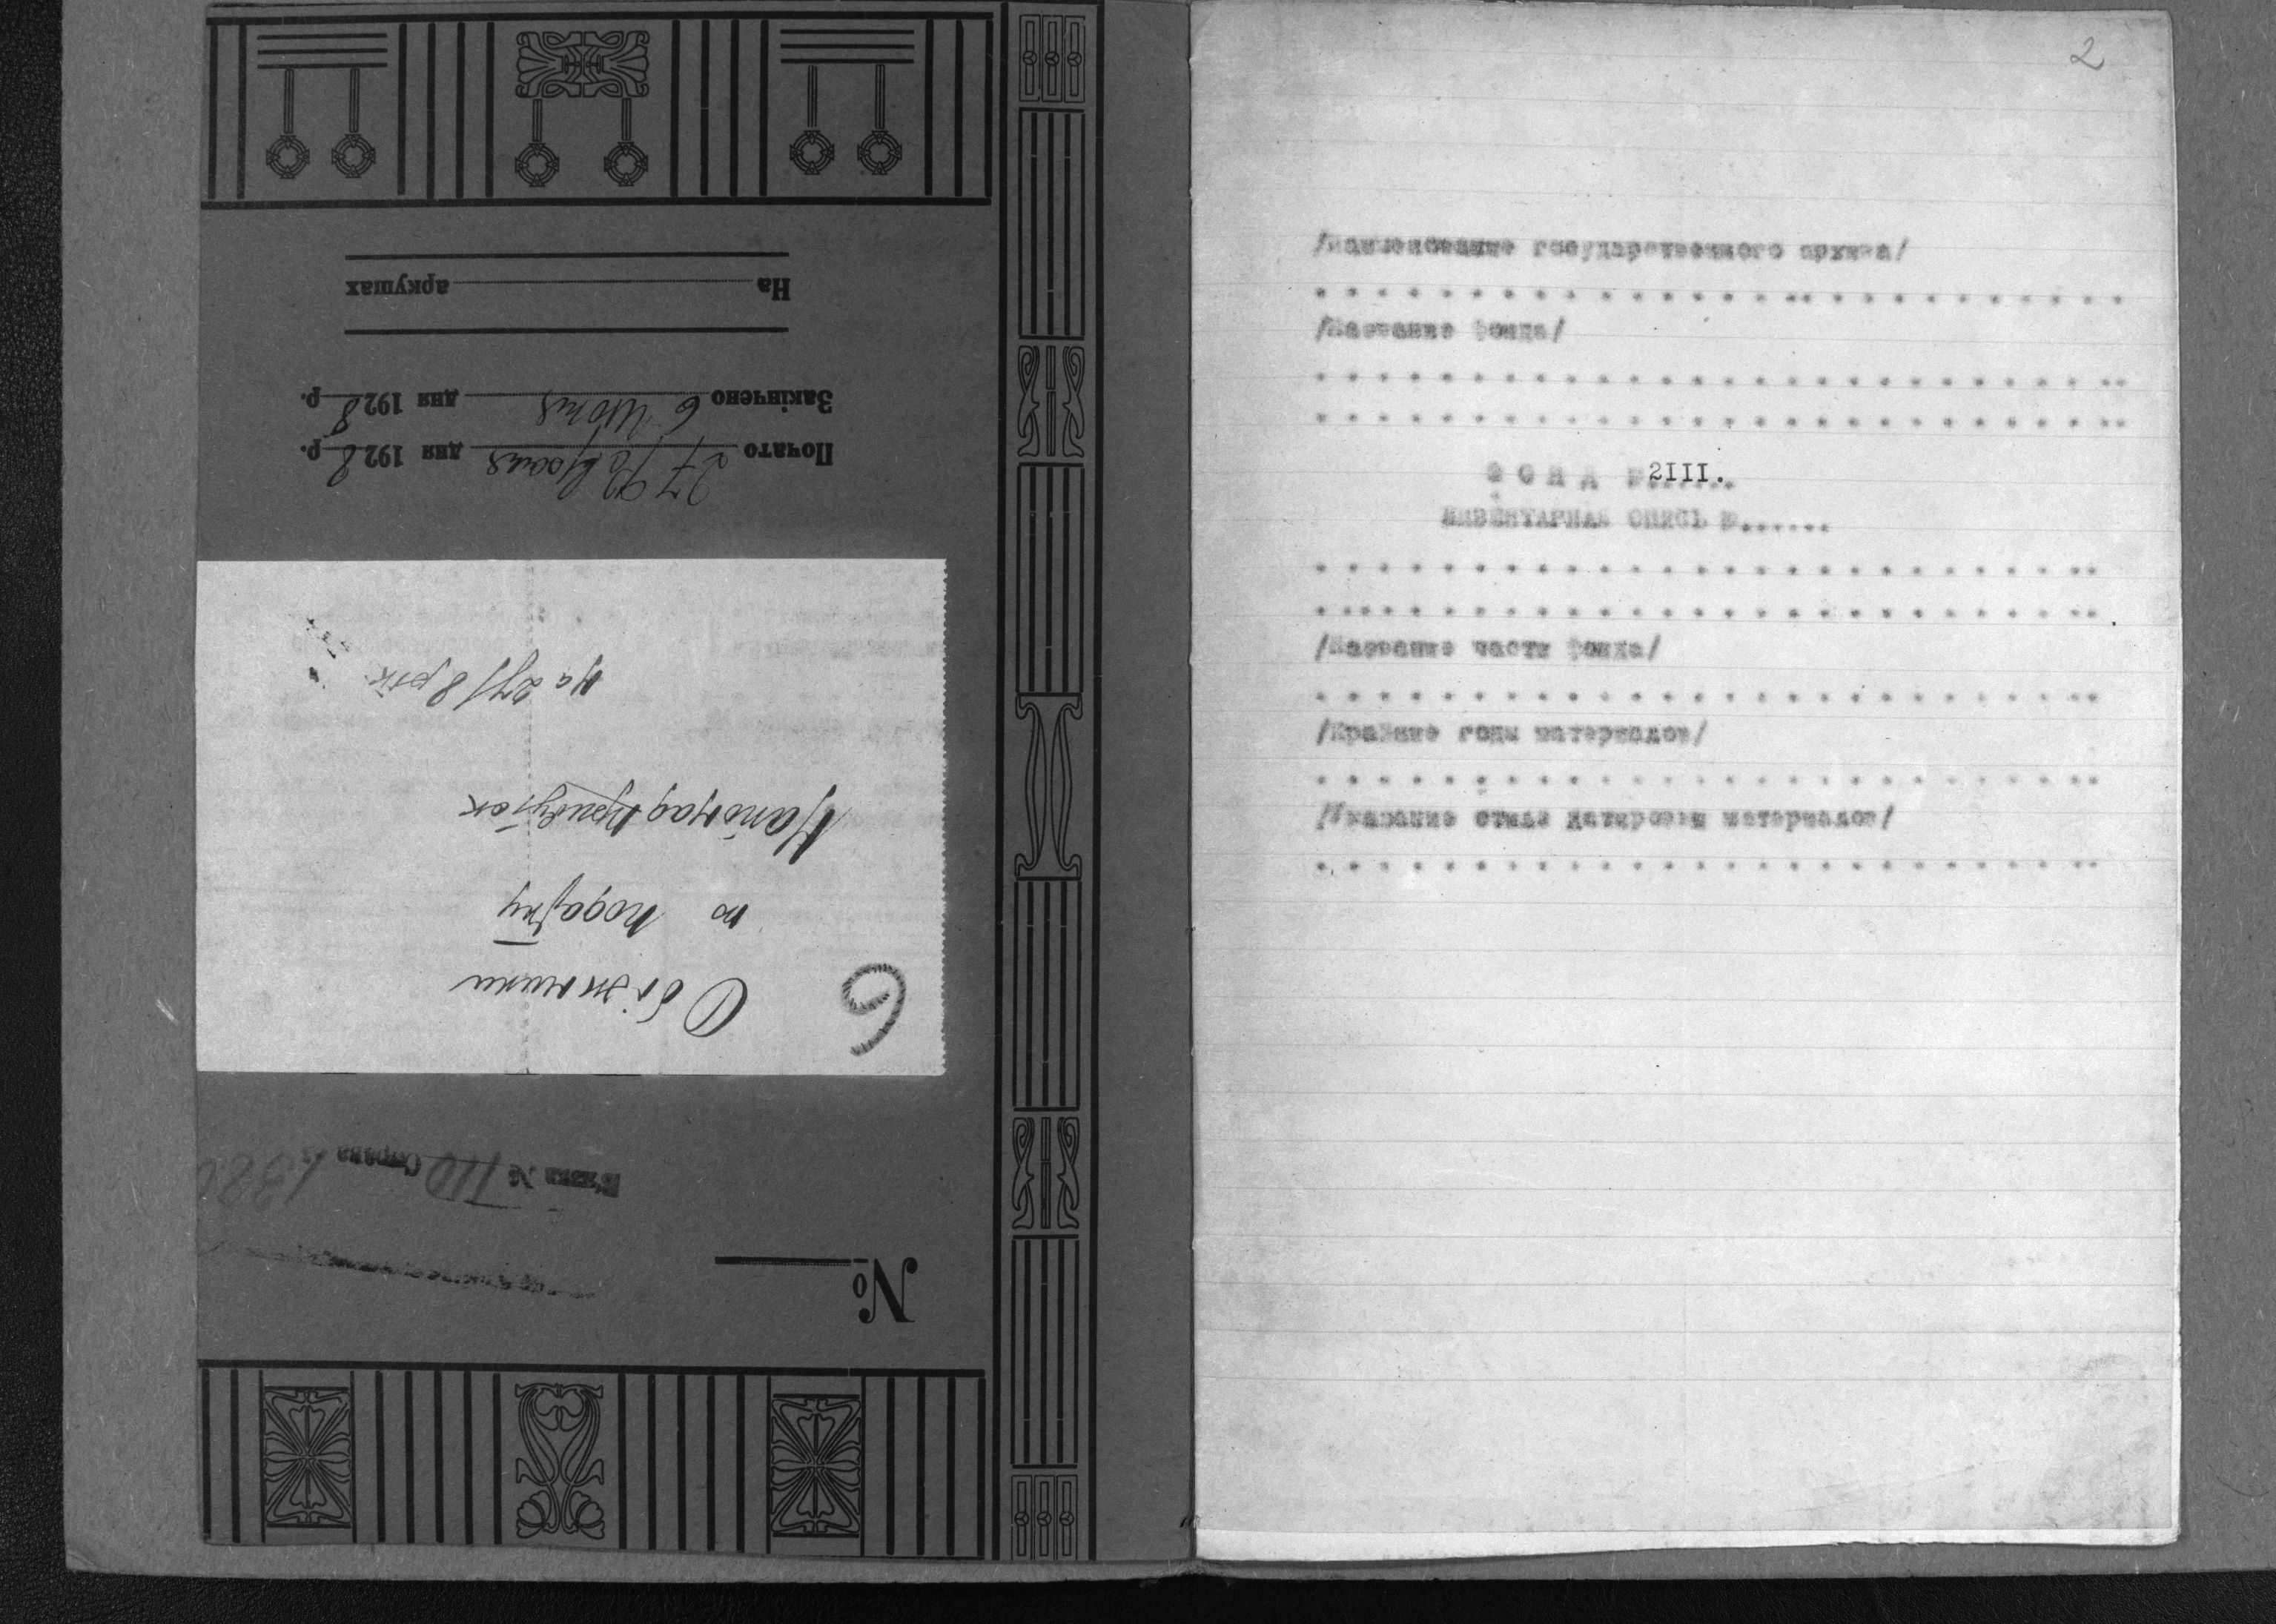 №
В'язка № 110 Справа 1380
6
Обіжники
по податку
на 27/8 рік
Почато 27 дня 1928 р.
Закінчено 6 дня 1928 р.
На аркушах
2
/Наименование государственного архива/
/Название фонда/
ФОНД №2III.
ИНВЕНТАРНАЯ ОПИСЬ №......
/Название части фонда/
/Крайние годы материалов/
/Указание стиля датировки материалов/